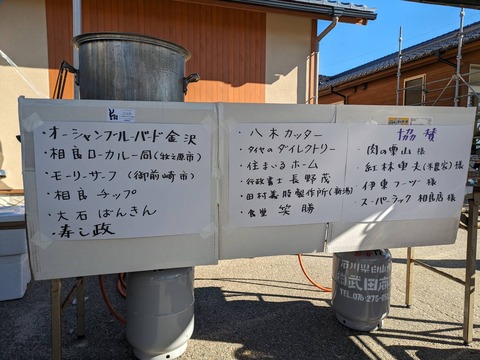 ・オーシャンブルーバード金沢
・相良ローカル一同(牧之原市)
・モーリーサーフ(御前崎市)
・相良チップ
・大石ばんきん
・寿し政
・八木カッター
・タイヤのダイレクトリー
・住まいるホーム
・行政書士 長野茂
・田村義肢製作所(新潟)
・食堂 笑勝
協賛
・肉の雲山 様
・伊東フーヅ 様
・スーパーラック 相良店 様
石川県白山
武田商
TEL.076-275-